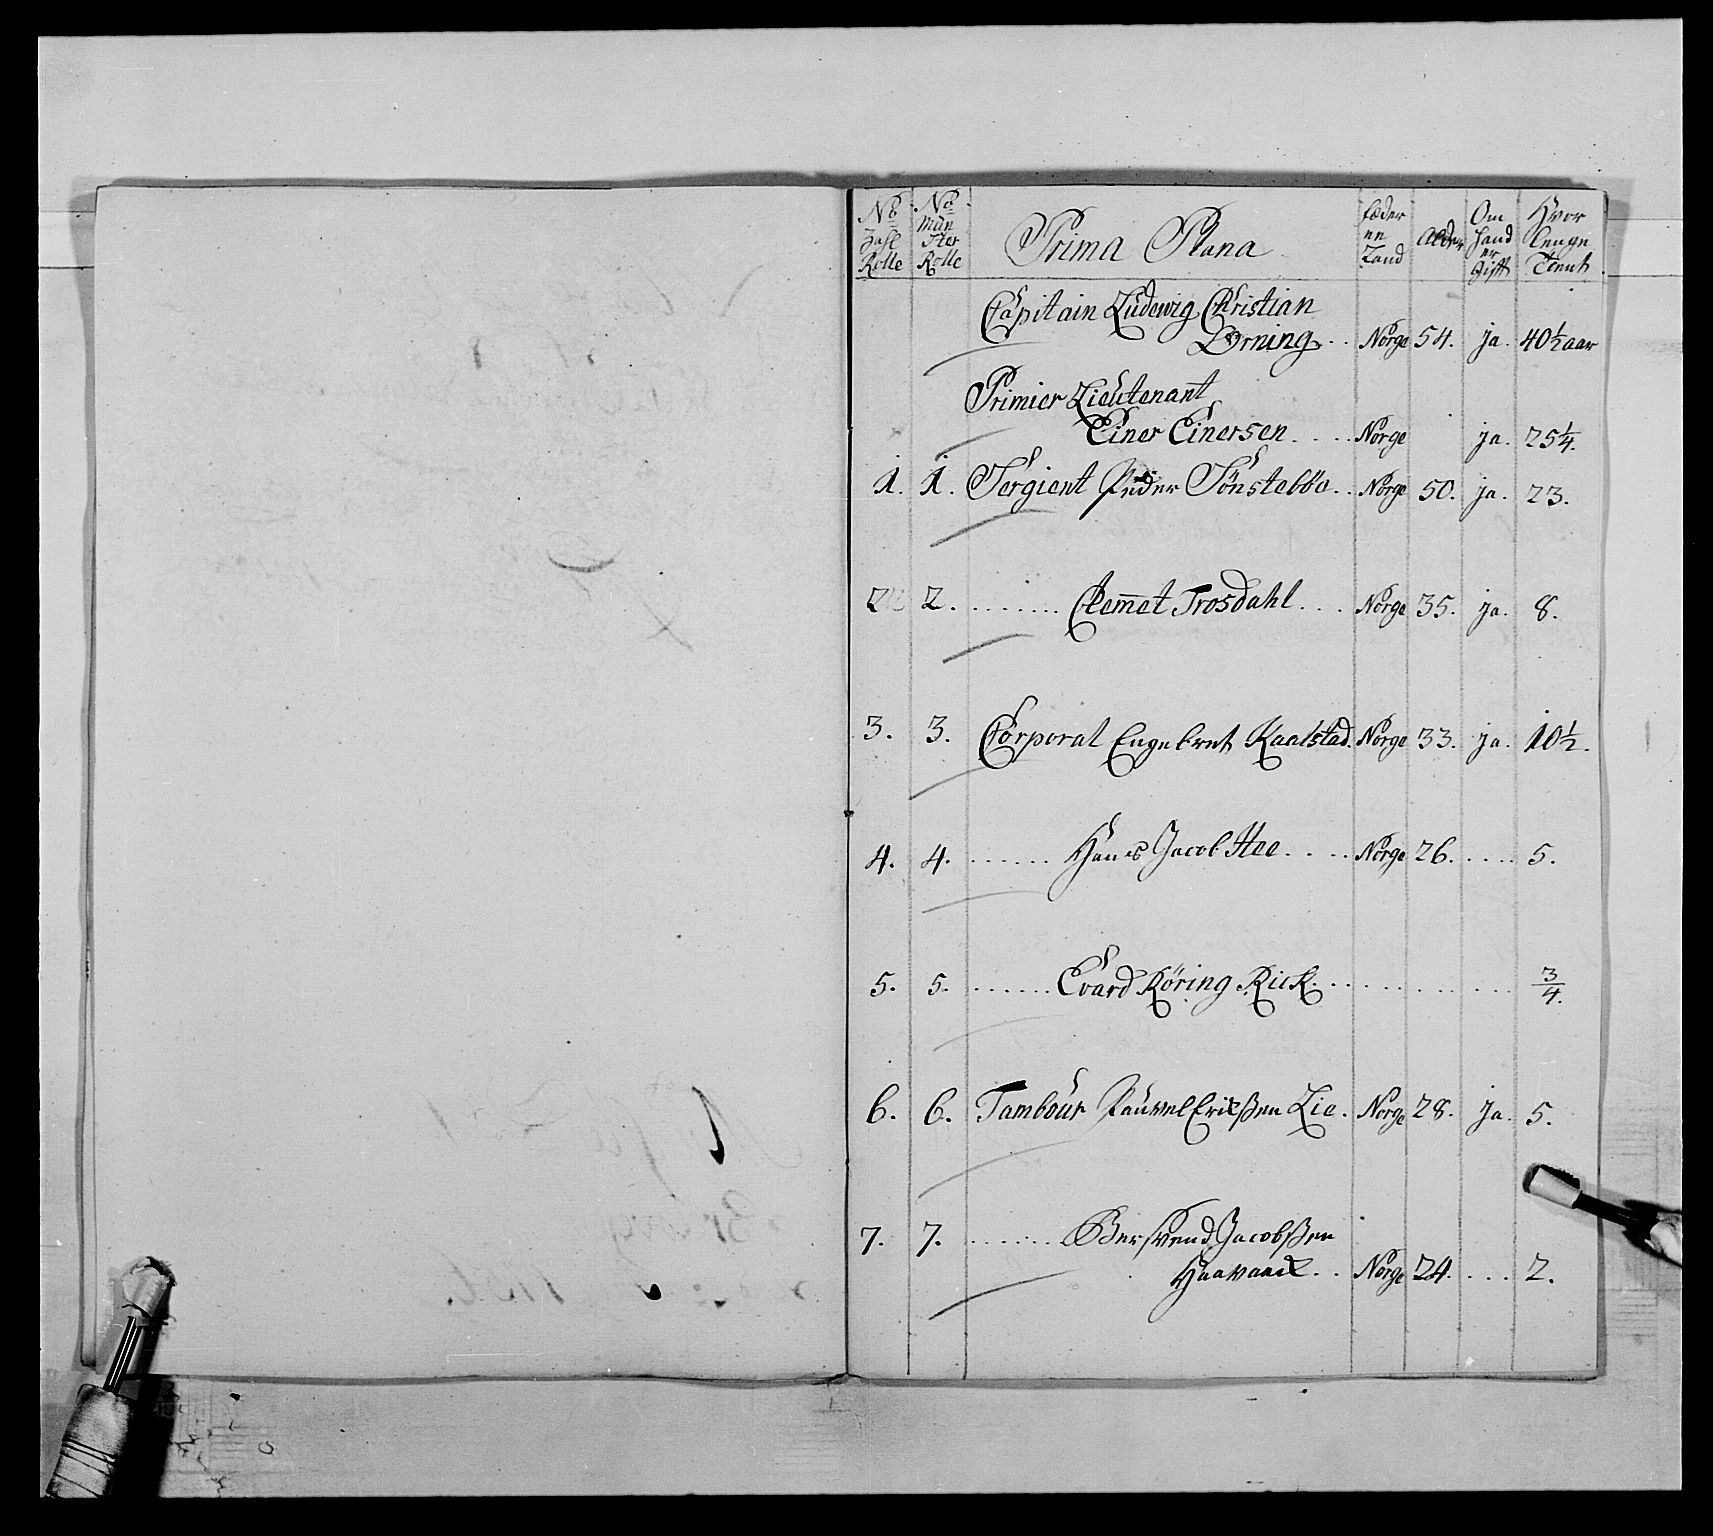 No Zahl Rolle | No Mün ster Rolle | Prima Plana | Fæder ne Land | Alder | Om hand er Gift | Hvor lenge Tient
Capitain Ludewig Christian
Dorning . . Norge 54. ja. 40½ aar
Primier Lieutenant
Einer Einersen . . . . Norge ja. 25¼.
1. 1. Sergient Peder Tönstebbo . . Norge 50. ja. 23.
2. 2. . . . . . . . . Clem̅et Trosdahl . . . Norge 35. ja. 8.
3. 3. Corporal Engebret Kaalstad. Norge 33. ja. 10½.
4. 4. . . . . . . . Hans Jacob Hee . . . . Norge 26. . . . . 5.
5. 5. . . . . . . . Evard Röring Rick . . . . . . . . . . . ¾.
6. 6. Tambour Pauvel Erikßen Lie . Norge 28. ja. 5.
7. 7. . . . . . . . . Bersvend Jacobßen
Haavaard . . Norge 24. . . . 2.